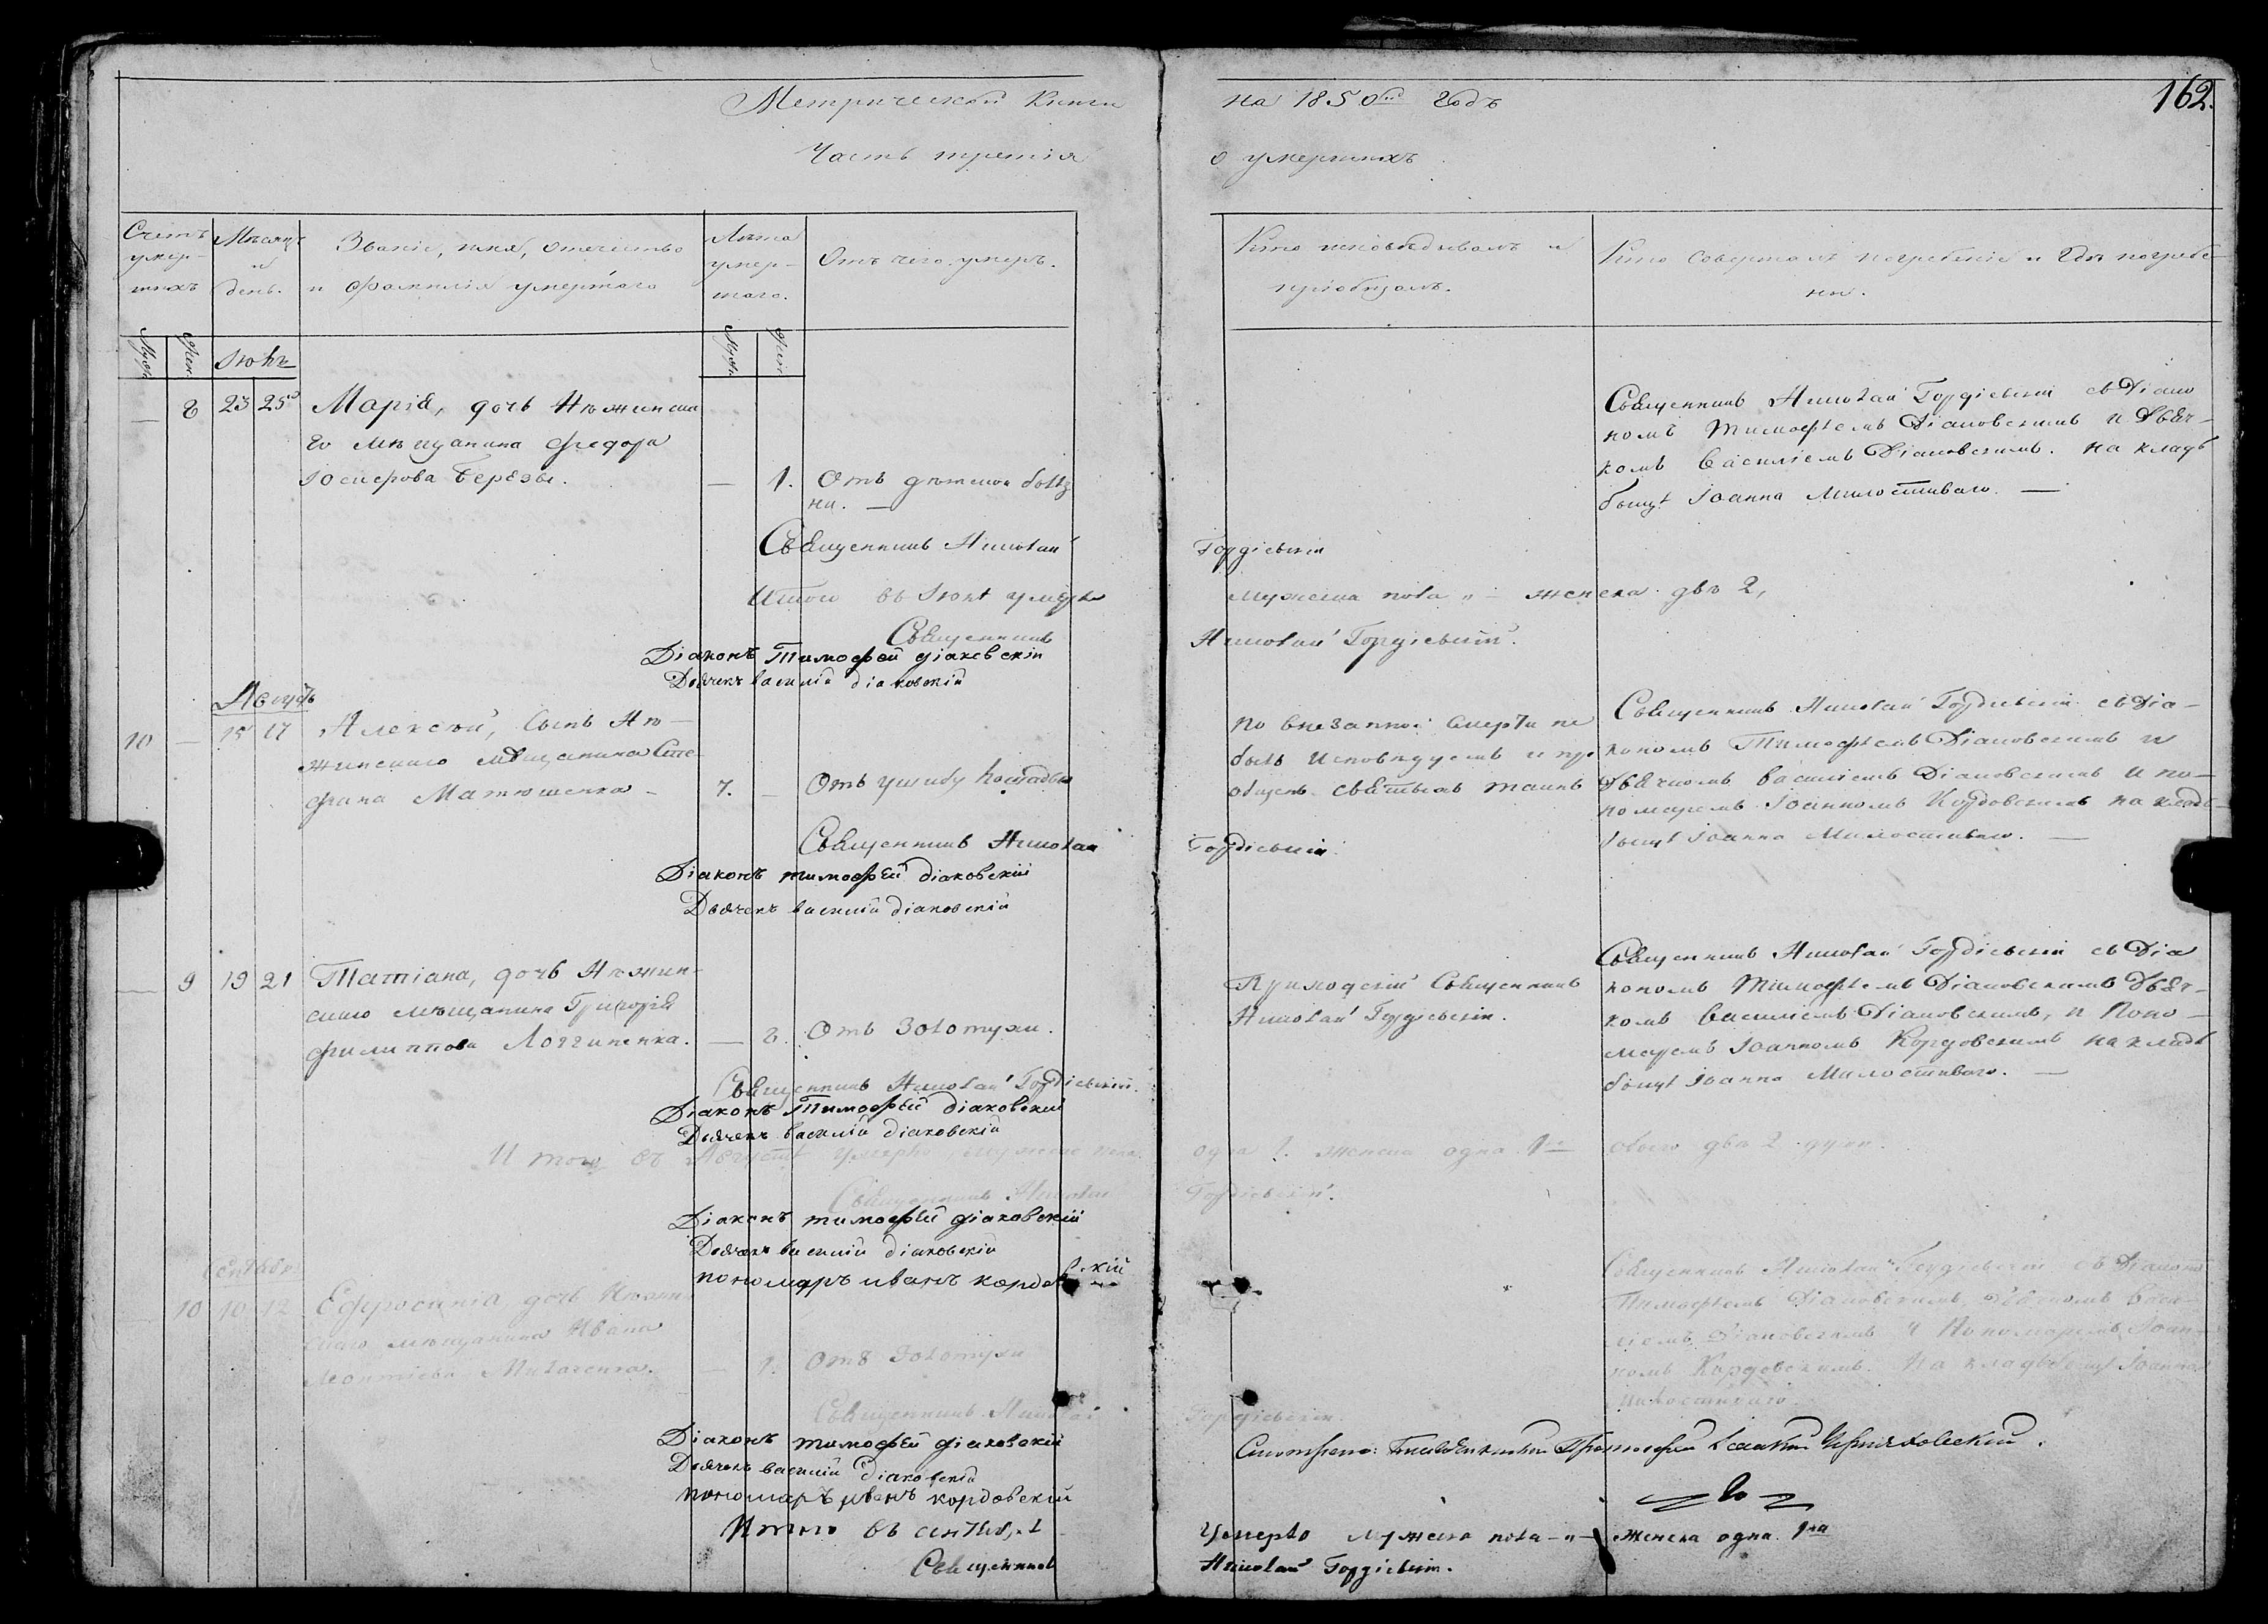 Метрической Книги на 1850й Годъ
162.
Часть третія о умершихъ
Счетъ умер-
шихъ
Мѣсяцъ
и
день.
Званіе, имя, отечество
и фамилія умершаго
Лѣта
умер-
шаго.
Отъ чего умеръ.
Кто исповѣдывалъ и
пріобщалъ.
Кто совершалъ погребеніе и гдѣ погребе-
ны.
Муж. Жен.
Муж. Жен.
— 8 23 25 Марія, дочь Нѣжинска
го мѣщанина Федора
Іосифова Берёзы. — 1. Отъ дѣтской болѣз
ни. —
Священникъ Николай Гордіевскій съ Діако
номъ Тимофеемъ Діаковскимъ и Дьяч-
комъ Василіемъ Діаковскимъ. на кладъ
бищѣ Іоанна Милостиваго. —
Священникъ Николай Гордіевскій
Итого въ умерло мужеска пола „ — женска двѣ 2,
Священникъ Николай Гордіевскій.
Діаконъ Тимофей діаковскій
Дьячекъ василій діаковскій
Августъ
10 — 15 17 Алексѣй, сынъ Нѣ-
жинскаго мѣщанина Сте
фана Матюшенка - 7. — Отъ ушибу лошадью
по внезапной смерти не
былъ исповѣдуемъ и прі
общенъ святыхъ таинъ
Священникъ Николай Гордіевскій съ Діа-
кономъ Тимофеемъ Діаковскимъ и
Дьячкомъ василіемъ Діаковскимъ и по-
номаремъ Іоанномъ Кордовскимъ на кладъ-
бищѣ Іоанна Милостиваго. —
Священникъ Николай Гордіевскій
Діаконъ тимофей діаковскій
Дьячекъ василій діаковскій
— 9 19 21 Татіана, дочь Нѣжин-
скаго мѣщанина Григорія
филиппова Логгиненка. — 2. Отъ Золотухи.
Приходскій Священникъ
Николай Гордіевскій.
Священникъ Николай Гордіевскій съ Діа
кономъ Тимофеемъ Діаковскимъ Дьяч-
комъ Василіемъ Діаковскимъ, и Поно-
маремъ Іоанномъ Кордовскимъ на кладъ
бищѣ Іоанна Милостиваго. —
Священникъ Николай Гордіевскій.
Діаконъ Тимофей діаковскій
Дьячекъ василій діаковскій
Итого въ Августѣ умерло мужеска пола одна 1. женска одна 1 всего два 2 души.
Священникъ Николай Гордіевскій.
Діаконъ тимофей діаковскій
Дьячекъ василій діаковскій
пономаръ иванъ кордовскій
10 10 12 Ефросинія дочь Нѣжин
скаго мѣщанина Ивана
Леонтіева — 1. отъ Золотухи
Священникъ Николай Гордіевскій съ Діакономъ
Тимофеемъ Діаковскимъ, Дьячкомъ Васи-
ліемъ Діаковскимъ и Пономаремъ Іоан-
номъ Кордовскимъ. На кладъбищѣ Іоанна
Милостиваго
Священникъ Николай Гордіевскій.
Діаконъ тимофей діаковскій
Дьячекъ василій діаковскій
пономаръ иванъ кордовскій
Итого въ умерло мужеска пола — „ — женска одна 1на
Священникъ Николай Гордіевскій.